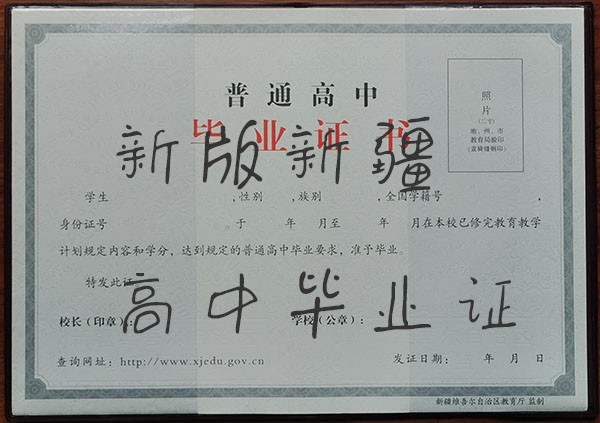 普通高中
毕业证书
照
片
(二寸)
地、州、市
教育局验印
(盖骑缝钢印)
新版新疆
学生 ,性别 ,族别 ,全国学籍号 ,
身份证号 。于 年 月至 年 月在本校已修完教育教学
计划规定内容和学分，达到规定的普通高中毕业要求，准予毕业。
特发此证。
高中毕业证
校长（印章）： 学校（公章）：
查询网址：http://www.xjedu.gov.cn 发证日期： 年 月 日
新疆维吾尔自治区教育厅 监制